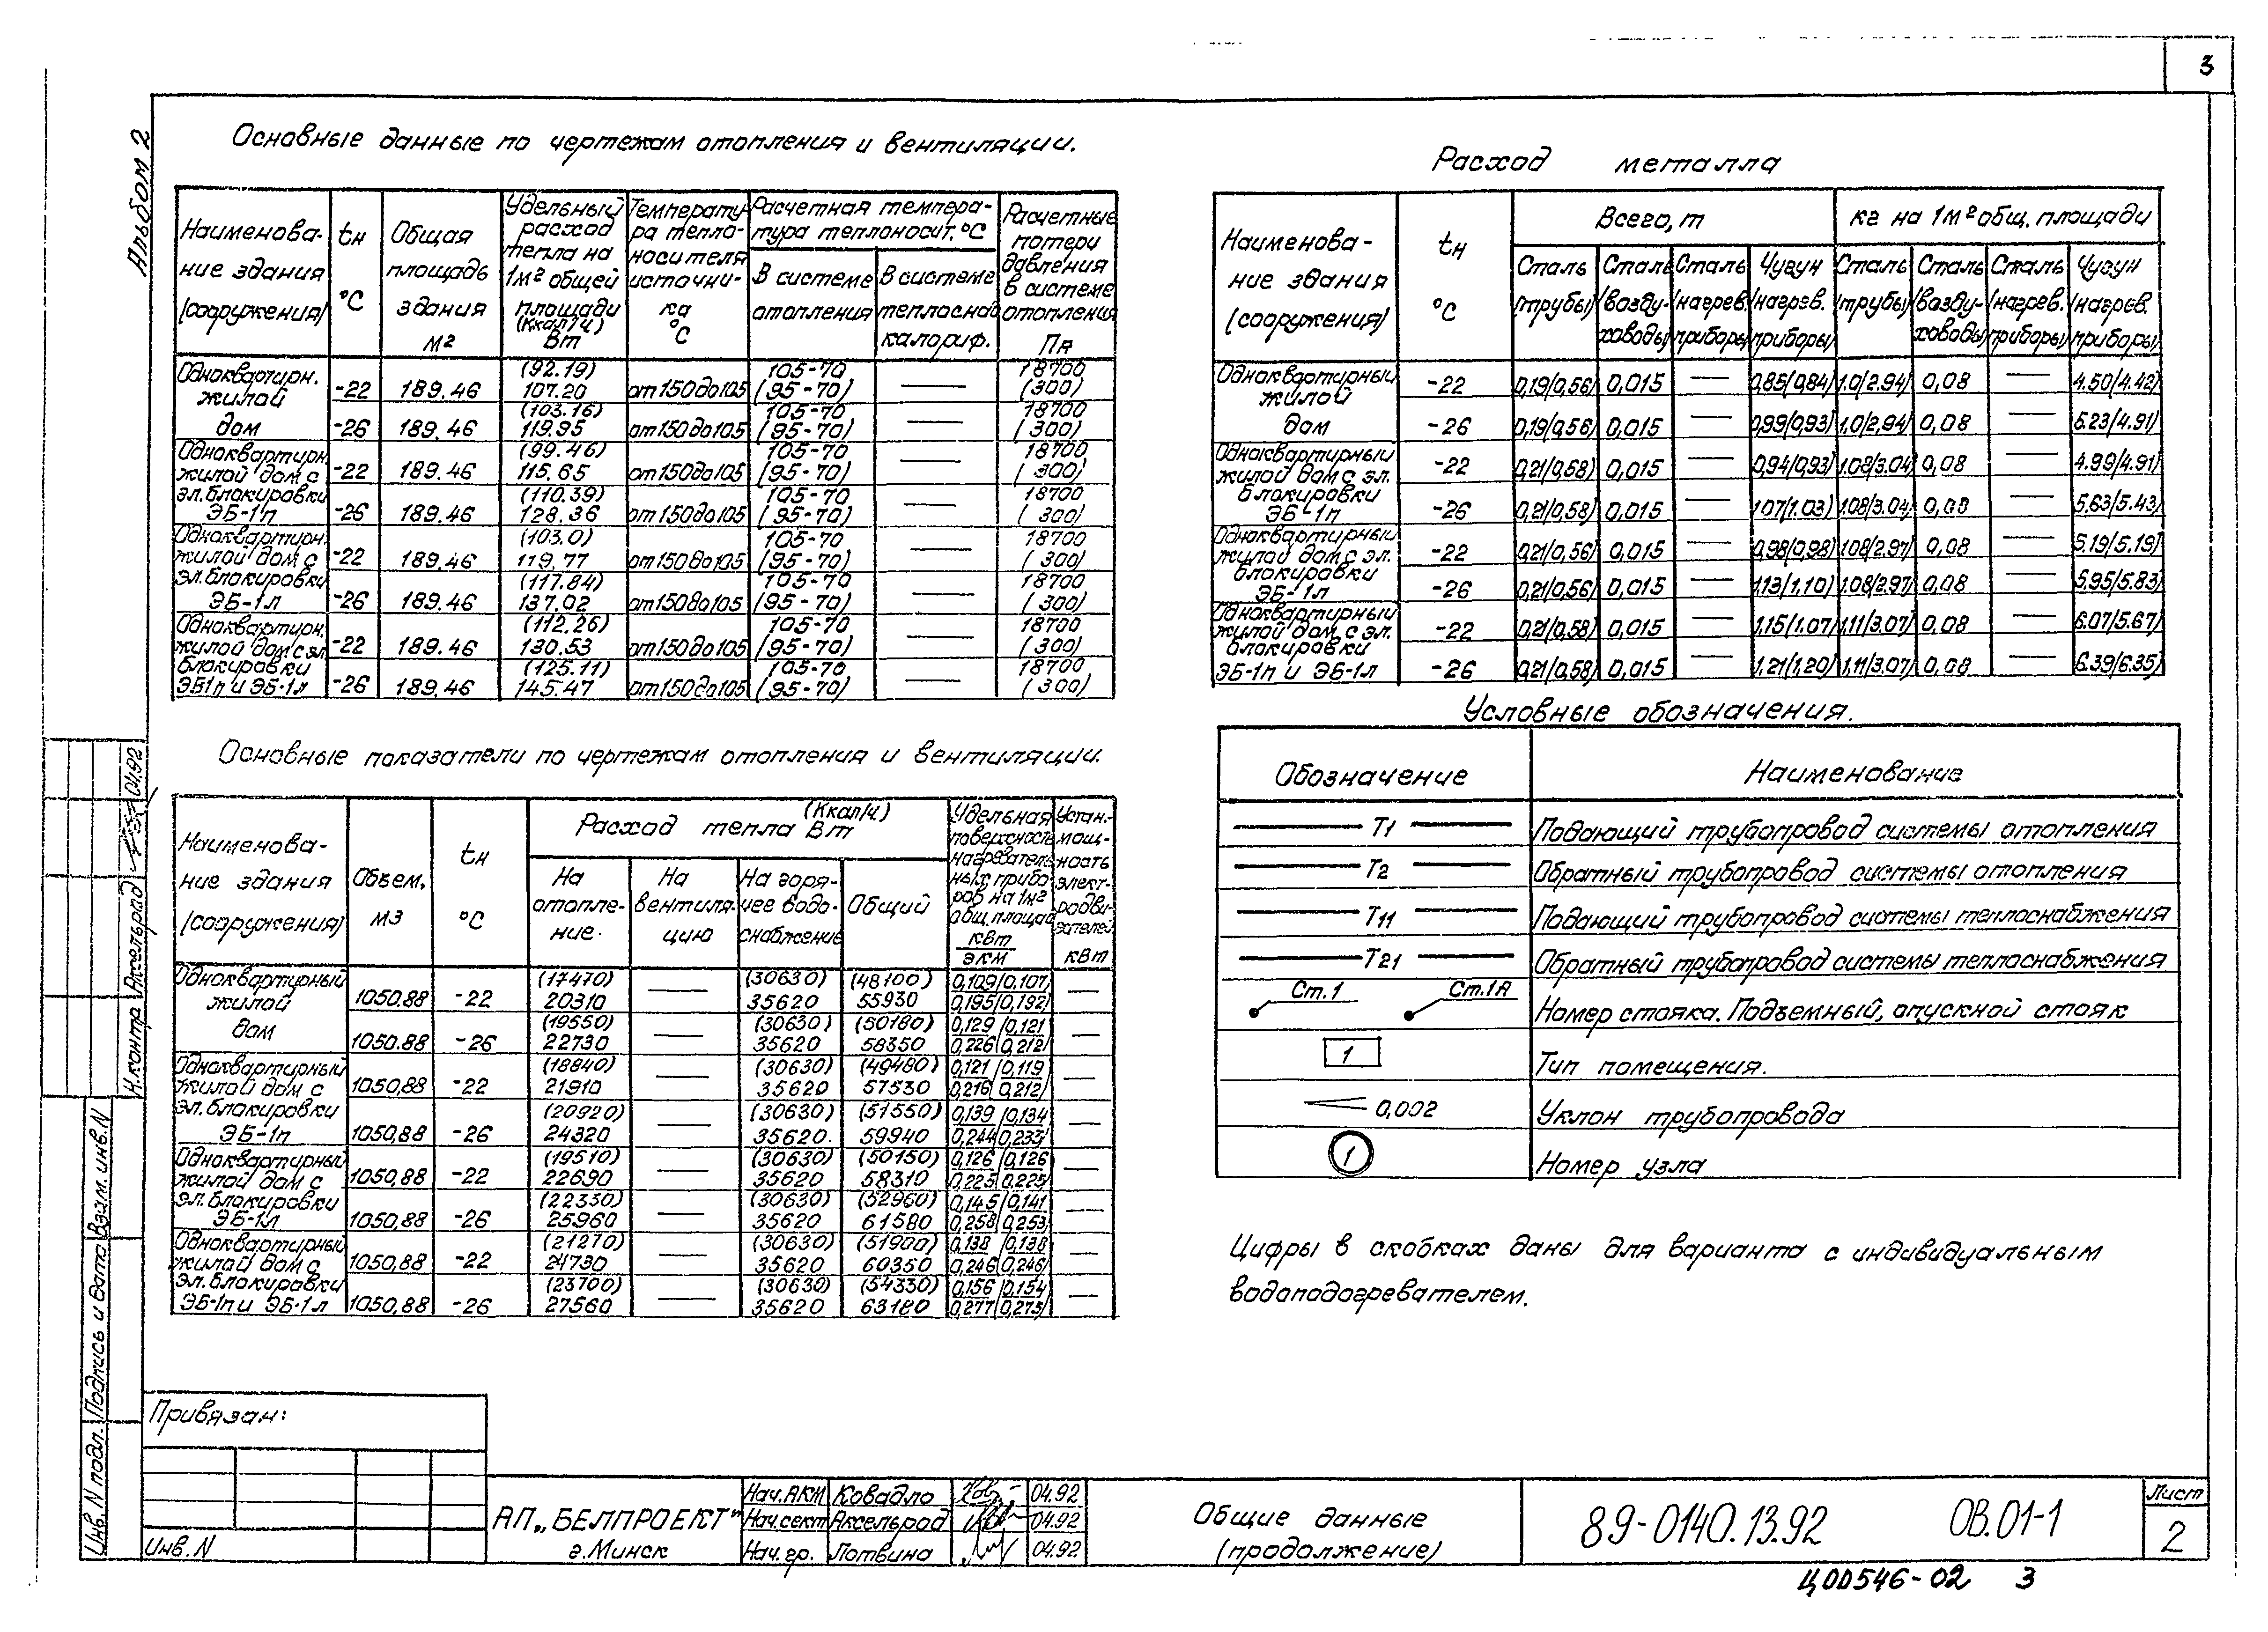 3
Альбом 2
Основные данные по чертежам отопления и вентиляции.
Наименова-
ние здания
(сооружения)
tн
°С
Общая
площадь
здания
м²
Удельный
расход
тепла на
1м² общей
площади
(Ккал/ч)
Вт
Температу-
ра тепло-
носителя
источни-
ка
°С
Расчетная темпера-
тура теплоносит. °С
В системе
отопления
В системе
теплоснаб
калориф.
Расчетные
потери
давления
в системе
отопления
Па
Одноквартирн.
жилой
дом
-22 189.46 (92.19) 107.20 от 150 до 105 105-70 (95-70) — 18700 (300)
-26 189.46 (103.16) 119.95 от 150 до 105 105-70 (95-70) — 18700 (300)
Одноквартирн.
жилой дом с
эл. блокировки
ЭБ-1п
-22 189.46 (99.46) 115.65 от 150 до 105 105-70 (95-70) — 18700 (300)
-26 189.46 (110.39) 128.36 от 150 до 105 105-70 (95-70) — 18700 (300)
Одноквартирн.
жилой дом с
эл. блокировки
ЭБ-1л
-22 189.46 (103.0) 119.77 от 150 до 105 105-70 (95-70) — 18700 (300)
-26 189.46 (117.84) 137.02 от 150 до 105 105-70 (95-70) — 18700 (300)
Одноквартирн.
жилой дом с эл.
блокировки
ЭБ1п и ЭБ-1л
-22 189.46 (112.26) 130.53 от 150 до 105 105-70 (95-70) — 18700 (300)
-26 189.46 (125.11) 145.47 от 150 до 105 105-70 (95-70) — 18700 (300)
Основные показатели по чертежам отопления и вентиляции.
Наименова-
ние здания
(сооружения)
Объем,
м3
tн
°С
(Ккал/ч)
Расход тепла Вт
На
отопле-
ние.
На
вентиля-
цию
На горя-
чее водо-
снабжение
Общий
Удельная
поверхность
нагреватель
ных прибо
ров на 1м²
общ. площади
квт
экм
Устан.
мощ-
ность
элект-
родви-
гателей
квт
Одноквартирный
жилой
дом
1050.88 -22 (17470) 20310 — (30630) 35620 (48100) 55930 0,109/0,107 0,195/0,192 —
1050.88 -26 (19550) 22730 — (30630) 35620 (50180) 58350 0,129/0,121 0,226/0,212 —
Одноквартирный
жилой дом с
эл. блокировки
ЭБ-1п
1050,88 -22 (18840) 21910 — (30630) 35620 (49480) 57530 0,121/0,119 0,216/0,212 —
1050,88 -26 (20920) 24320 — (30630) 35620. (51550) 59940 0,139/0,134 0,244/0,233 —
Одноквартирный
жилой дом с
эл. блокировки
ЭБ-1л
1050,88 -22 (19510) 22690 — (30630) 35620 (50150) 58310 0,126/0,126 0,225/0,225 —
1050,88 -26 (22330) 25960 — (30630) 35620 (52960) 61580 0,145/0,141 0,258/0,253 —
Одноквартирный
жилой дом с
эл. блокировки
ЭБ-1п и ЭБ-1л
1050,88 -22 (21270) 24730 — (30630) 35620 (51900) 60350 0,138/0,138 0,246/0,246 —
1050,88 -26 (23700) 27560 — (30630) 35620 (54330) 63180 0,156/0,154 0,277/0,273 —
Расход металла
Наименова-
ние здания
(сооружения)
tн
°С
Всего, т
кг на 1м² общ. площади
Сталь (трубы)
Сталь (возду-ховоды)
Сталь (нагрев. приборы)
Чугун (нагрев. приборы)
Сталь (трубы)
Сталь (возду-ховоды)
Сталь (нагрев. приборы)
Чугун (нагрев. приборы)
Одноквартирный
жилой
дом
-22 0,19(0,56) 0,015 — 0,85(0,84) 1.0(2.94) 0,08 — 4.50(4.42)
-26 0,19(0,56) 0,015 — 0,99(0,93) 1.0(2,94) 0,08 — 5.23(4.91)
Одноквартирный
жилой дом с эл.
блокировки
ЭБ-1п
-22 0,21(0,58) 0,015 — 0,94(0,93) 1.08(3.04) 0,08 — 4.99(4.91)
-26 0,21(0,58) 0,015 — 1.07(1.03) 1.08(3.04) 0,08 — 5,63(5.43)
Одноквартирный
жилой дом с эл.
блокировки
ЭБ-1л
-22 0,21(0,56) 0,015 — 0,98(0,98) 1.08(2.97) 0,08 — 5.19(5.19)
-26 0,21(0,56) 0,015 — 1,13(1,10) 1.08(2.97) 0,08 — 5.95(5.83)
Одноквартирный
жилой дом с эл.
блокировки
ЭБ-1п и ЭБ-1л
-22 0,21(0,58) 0,015 — 1.15(1.07) 1,11(3.07) 0,08 — 6.07(5.67)
-26 0,21(0,58) 0,015 — 1.21(1.20) 1,11(3.07) 0,08 — 6.39(6.35)
Условные обозначения.
Обозначение Наименование
Т1 Подающий трубопровод системы отопления
Т2 Обратный трубопровод системы отопления
Т11 Подающий трубопровод системы теплоснабжения
Т21 Обратный трубопровод системы теплоснабжения
Ст.1 Ст.1А Номер стояка. Подъемный, опускной стояк
1 Тип помещения.
0,002 Уклон трубопровода
1 Номер узла
Цифры в скобках даны для варианта с индивидуальным
водоподогревателем.
Н.контр Аксельрад 04.92
Взам. инв. N
Подпись и дата
Инв. N подл.
Привязан:
Инв. N
АП „БЕЛПРОЕКТ"
г. Минск
Нач. АКМ Ковадло 04.92
Нач. сект Аксельрод 04.92
Нач. гр. Лотвина 04.92
Общие данные
(продолжение)
89-0140.13.92 ОВ.01-1
Лист
2
Ц00546-02 3